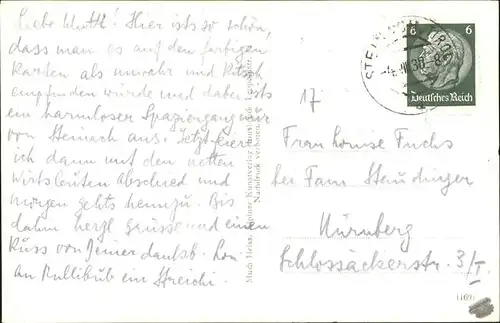 Liebe Mutti! Hier ists so schön,
dass man es auf den farbigen
Karten als unwahr und Kitsch
empfinden würde und dabei ists
ein harmloser Spaziergang nur
von Steinach aus. Jetzt feiere
ich dann mit den netten
Wirtsleuten Abschied und
morgen gehts heimzu. Bis
dahin herzl Grüsse und einen
Kuss von Deiner dankb.
An Pullibüb ein Streichi.
Much Heiss, Tiroler Kunstverlag, Innsbruck,
Nachdruck verboten.
STEINACH TIROL
6 6
Deutsches Reich
17
Frau Louise Fuchs
bei Fam Staudinger
Nürnberg
Schlossäckerstr. 3/I.